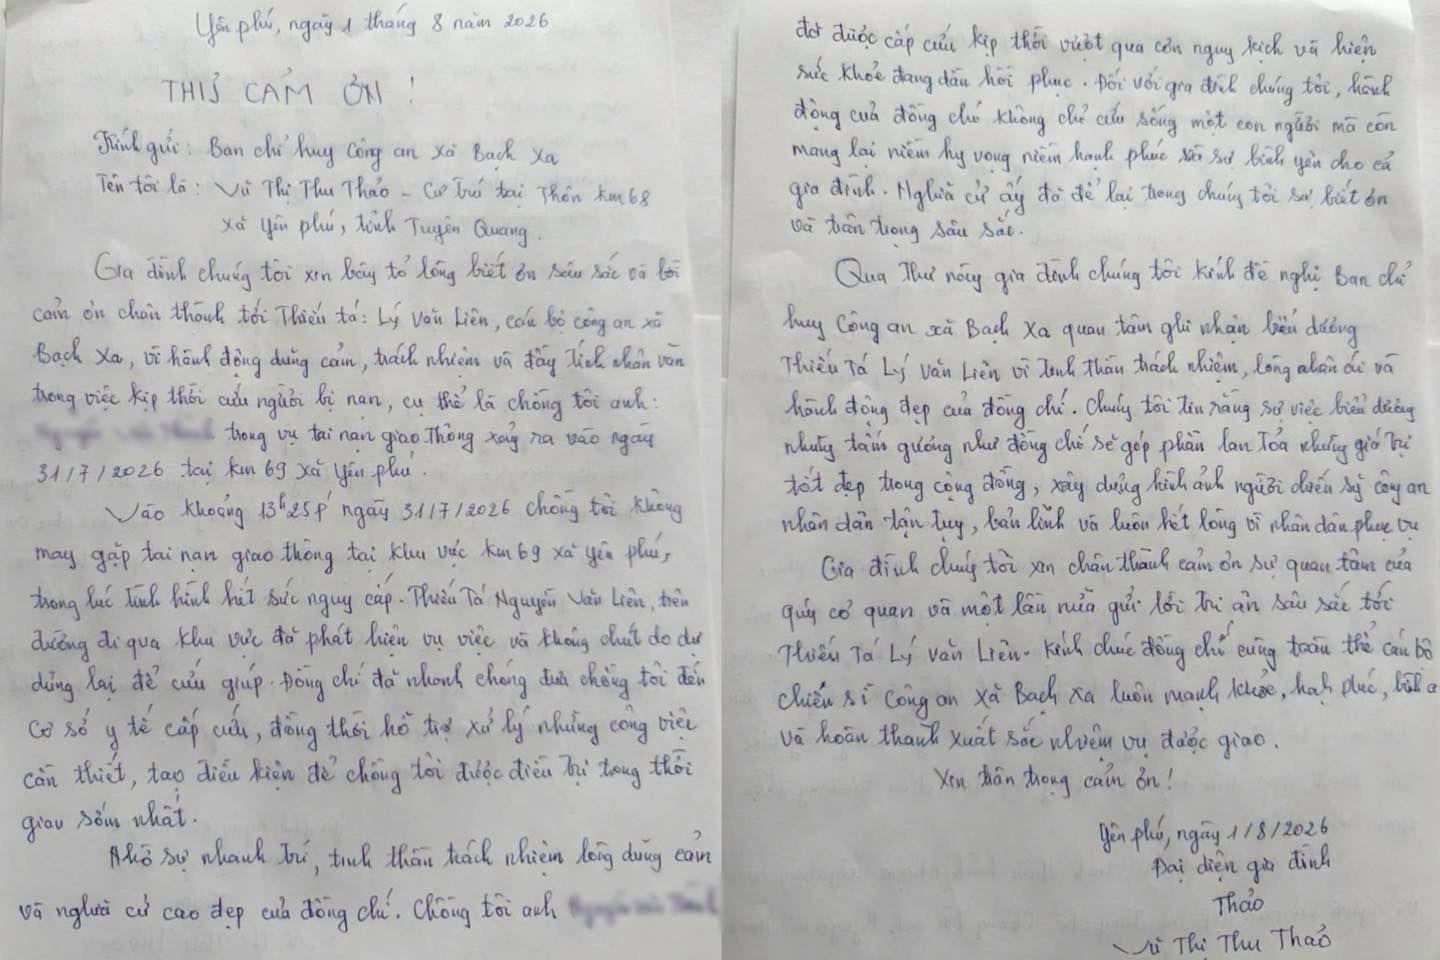 Yên phú, ngày 1 tháng 8 năm 2026
THƯ CẢM ƠN !
Kính gửi: Ban chỉ huy Công an xã Bạch Xa
Tên tôi là: Vũ Thị Thu Thảo - Cư trú tại Thôn Km68
xã Yên phú, tỉnh Tuyên Quang.
Gia đình chúng tôi xin bày tỏ lòng biết ơn sâu sắc và lời
cảm ơn chân thành tới Thiếu tá: Lý Văn Liên, cán bộ công an xã
Bạch Xa, vì hành động dũng cảm, trách nhiệm và đầy tính nhân văn
trong việc kịp thời cứu người bị nạn, cụ thể là chồng tôi anh:
trong vụ tai nạn giao thông xảy ra vào ngày
31/7/2026 tại km 69 xã Yên phú.
Vào khoảng 13h25p ngày 31/7/2026 chồng tôi không
may gặp tai nạn giao thông tại khu vực km69 xã yên phú,
trong lúc tình hình hết sức nguy cấp. Thiếu Tá Nguyễn Văn Liên, trên
đường đi qua khu vực đã phát hiện vụ việc và không chút do dự
dừng lại để cứu giúp. Đồng chí đã nhanh chóng đưa chồng tôi đến
cơ sở y tế cấp cứu, đồng thời hỗ trợ xử lý những công việc
cần thiết, tạo điều kiện để chồng tôi được điều trị trong thời
gian sớm nhất.
Nhờ sự nhanh trí, tinh thần trách nhiệm lòng dũng cảm
và nghĩa cử cao đẹp của đồng chí. Chồng tôi anh
đã được cấp cứu kịp thời vượt qua cơn nguy kịch và hiện
sức khỏe đang dần hồi phục. Đối với gia đình chúng tôi, hành
động của đồng chí không chỉ cứu sống một con người mà còn
mang lại niềm hy vọng niềm hạnh phúc và sự bình yên cho cả
gia đình. Nghĩa cử ấy đã để lại trong chúng tôi sự biết ơn
và trân trọng sâu sắc.
Qua Thư này gia đình chúng tôi kính đề nghị Ban chỉ
huy Công an xã Bạch Xa quan tâm ghi nhận biểu dương
Thiếu Tá Lý Văn Liên vì tinh thần trách nhiệm, lòng nhân ái và
hành động đẹp của đồng chí. Chúng tôi tin rằng sự việc biểu dương
những tấm gương như đồng chí sẽ góp phần lan tỏa những giá trị
tốt đẹp trong cộng đồng, xây dựng hình ảnh người chiến sỹ công an
nhân dân tận tụy, bản lĩnh và luôn hết lòng vì nhân dân phục vụ
Gia đình chúng tôi xin chân thành cảm ơn sự quan tâm của
quý cơ quan và một lần nữa gửi lời tri ân sâu sắc tới
Thiếu Tá Lý Văn Liên. Kính chúc đồng chí cùng toàn thể cán bộ
chiến sĩ Công an xã Bạch Xa luôn mạnh khỏe, hạnh phúc,
và hoàn thành xuất sắc nhiệm vụ được giao.
Xin trân trọng cảm ơn!
Yên phú, ngày 1/8/2026
Đại diện gia đình
Thảo
Vũ Thị Thu Thảo